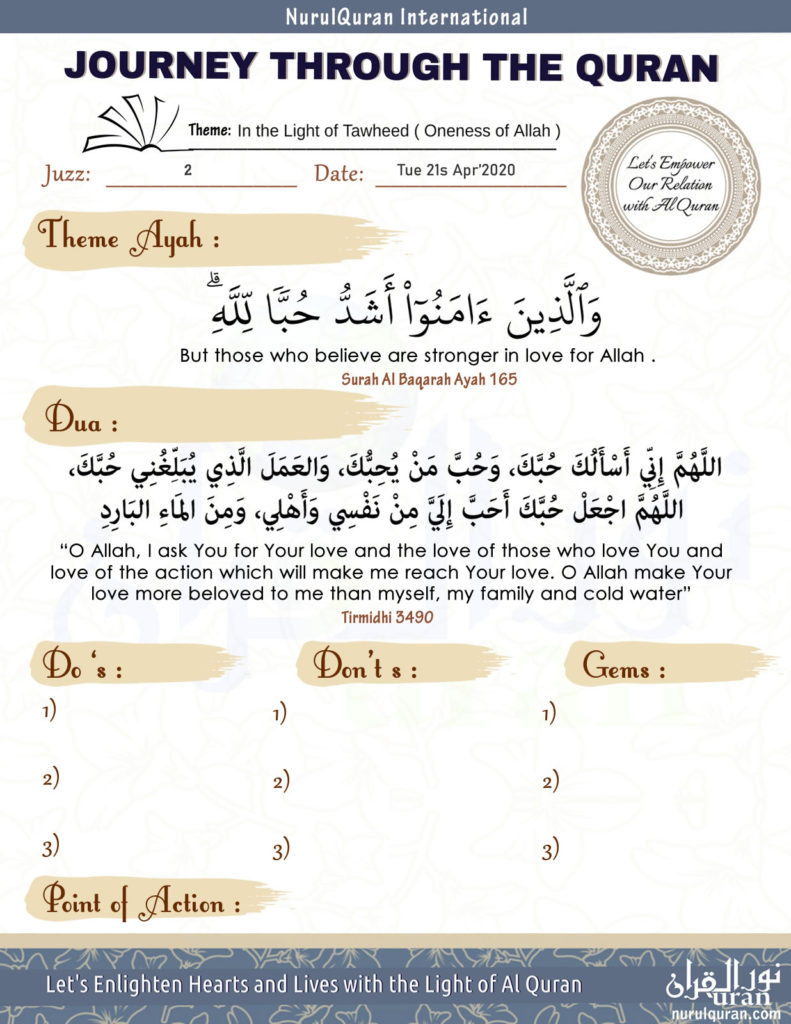 NurulQuran International
JOURNEY THROUGH THE QURAN
Theme: In the Light of Tawheed ( Oneness of Allah )
Juzz: 2 Date: Tue 21s Apr’2020
Let's Empower
Our Relation
with Al Quran
Theme Ayah :
وَٱلَّذِينَ ءَامَنُوٓا۟ أَشَدُّ حُبًّا لِّلَّهِ ۗ
But those who believe are stronger in love for Allah .
Surah Al Baqarah Ayah 165
Dua :
اللَّهُمَّ إِنِّي أَسْأَلُكَ حُبَّكَ، وَحُبَّ مَنْ يُحِبُّكَ، وَالعَمَلَ الَّذِي يُبَلِّغُنِي حُبَّكَ،
اللَّهُمَّ اجْعَلْ حُبَّكَ أَحَبَّ إِلَيَّ مِنْ نَفْسِي وَأَهْلِي، وَمِنَ المَاءِ البَارِدِ
“O Allah, I ask You for Your love and the love of those who love You and
love of the action which will make me reach Your love. O Allah make Your
love more beloved to me than myself, my family and cold water”
Tirmidhi 3490
Do ‘s : Don’t s : Gems :
1) 1) 1)
2) 2) 2)
3) 3) 3)
Point of Action :
Let's Enlighten Hearts and Lives with the Light of Al Quran
نور القرآن
uran
nurulquran.com